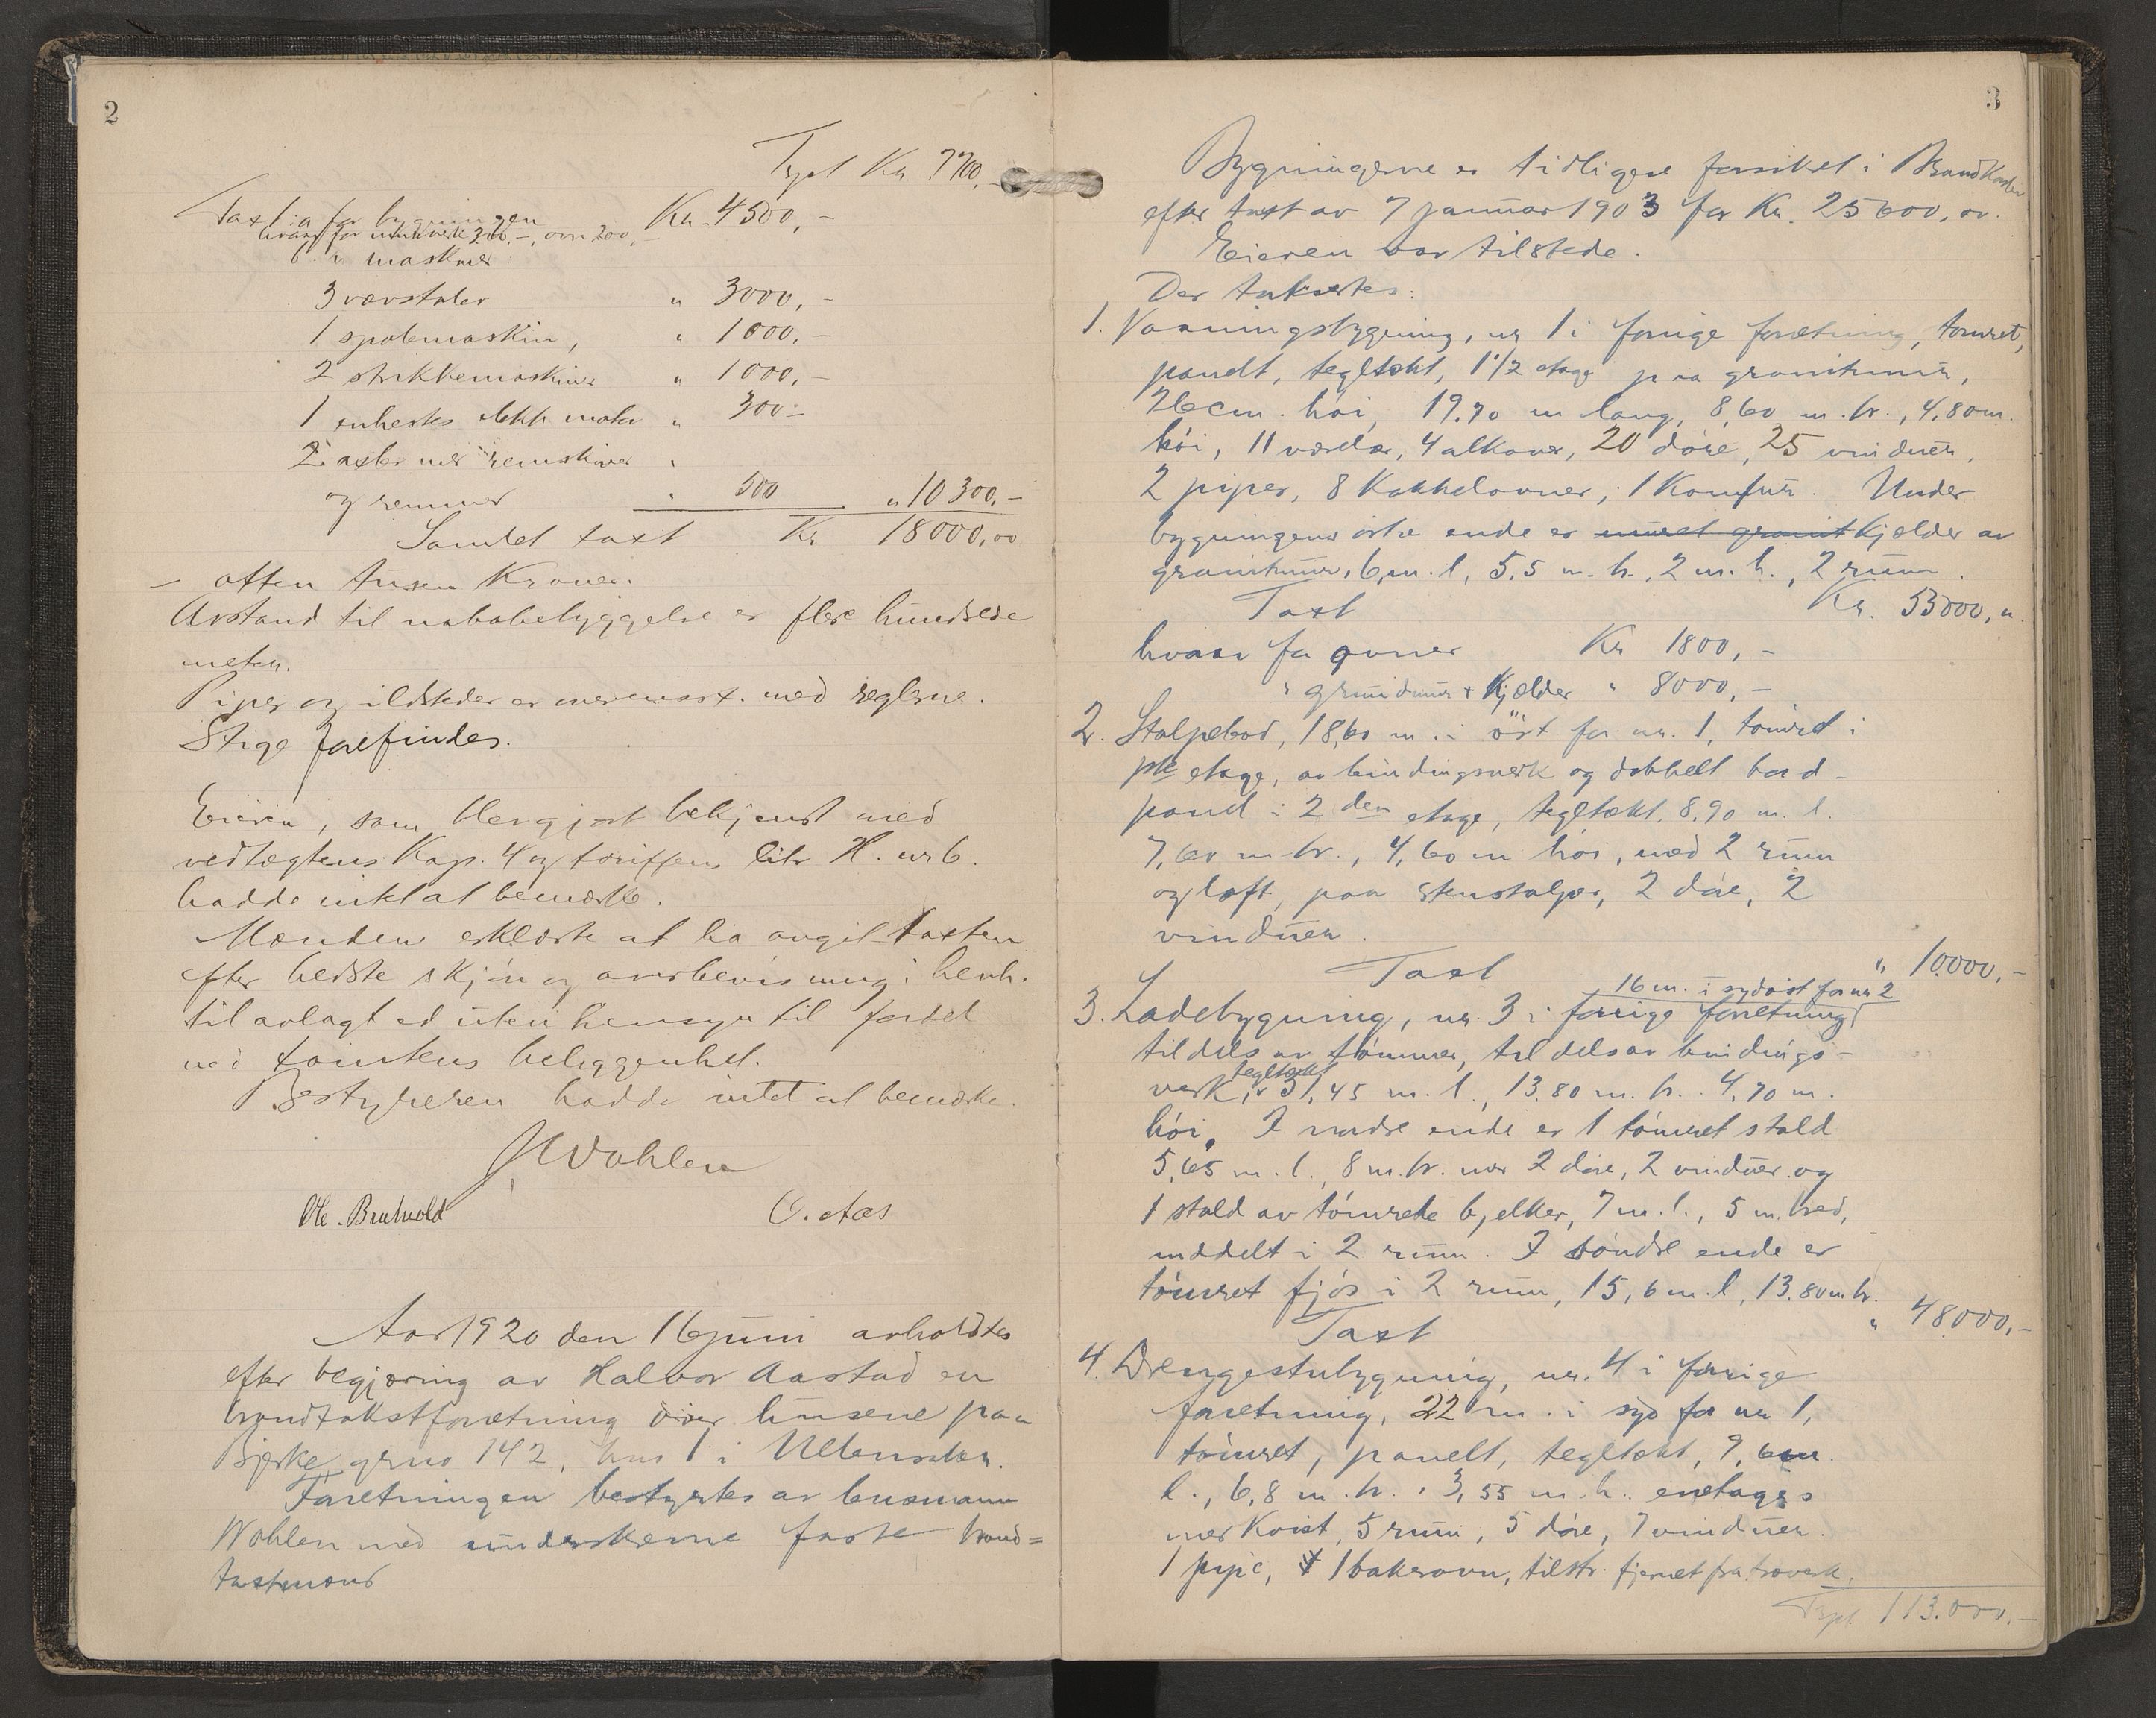 2
Trpt Kr 7700,-
Taxt a for bygningen Kr. 4500,-
hvorav for murverk 300,-, ovn 200,-
b. " maskiner:
3 vævstoler " 3000,-
1 spolemaskin, " 1000,-
2 strikkemaskiner " 1000,-
1 enhestes elektr. motor " 300-
2 axler med remskiver "
og remmer " 500 " 10300,-
Samlet taxt Kr 18000,00
- atten tusen Kroner.
Avstand til nabobebyggelse er flere hundrede
meter.
Piper og ildsteder er overensst. med reglerne.
Stige forefindes.
Eieren, som blev gjort bekjendt med
vedtægtens Kap. 4 og tariffens litr H. nr 6.
hadde intet at bemerke.
Mænden erklærte at ha avgit taxten
efter bedste skjøn og overbevisning i henh.
til avlagt ed uten hensyn til fordel
ved tomtens beliggenhet.
Bestyreren hadde intet at bemerke.
J Wohlen
Ole. Bruhvold O. Aas
Aar 1920 den 16 juni avholdtes
efter begjæring av Halvor Aastad en
brandtakstforretning over husene paa
Bjerke grno 142, bno 1 i Ullensaker.
Forretningen bestyrtes av lensmann
Wohlen med underskrevne faste brand=
taxtmænd
3
Bygningerne er tidligere forsikret i Brandkassen
efter taxt av 7 januar 1903 for Kr. 25600,00.
Eieren var tilstede.
Der taksertes:
1. Vaaningsbygning, nr 1 i forrige forretning, tømret,
panelt, tegltækt, 1 1/2 etage paa granitmur,
26 cm. høi, 19,70 m lang, 8,60 m. br., 4,80 m.
høi, 11 værelser, 4 alkover, 20 døre, 25 vinduer,
2 piper, 8 Kakkelovner, 1 Komfur. Under
bygningens østre ende er muret granit Kjælder av
granitmur, 6 m. l, 5,5 m. br., 2 m. h., 2 rum.
Taxt Kr. 53000,00
hvorav for ovner Kr 1800,-
" grundmur + Kjælder " 8000,-
2. Stolpebod, 18,60 m. i øst for nr. 1, tømret i
1ste etage, av bindingsverk og dobbelt bord-
panel i 2den etage, tegltækt, 8,90 m. l.
7,60 m br., 4,60 m høi, med 2 rum
og loft, paa stenstolper, 2 døre, 2
vinduer.
Taxt " 10.000,-
16 m. i sydøst for nr 2
3. Ladebygning, nr. 3 i forrige forretning,
tildels av tømmer, tildels av bindings-
tegltækt
verk, 31,45 m. l., 13,80 m. br. 4,70 m.
høi. I nordre ende er 1 tømret stald
5,65 m. l., 8 m. br. med 2 døre, 2 vinduer og
1 stald av tømrede bjelker, 7 m. l., 5 m. bred,
inddelt i 2 rum. I søndre ende er
tømret fjøs i 2 rum, 15,6 m. l, 13,80 m br.
Taxt " 48000,-
4. Drengestubygning, nr. 4 i forrige
forretning, 22 m. i syd for nr 1,
tømret, panelt, tegltækt, 9,6 m.
l., 6,8 m. br., 3,55 m. h. enetages
med Kvist, 5 rum, 5 døre, 7 vinduer.
1 pipe, 1 bakerovn, tilstr. fjernet fra træverk.
Trpt. 113.000,-